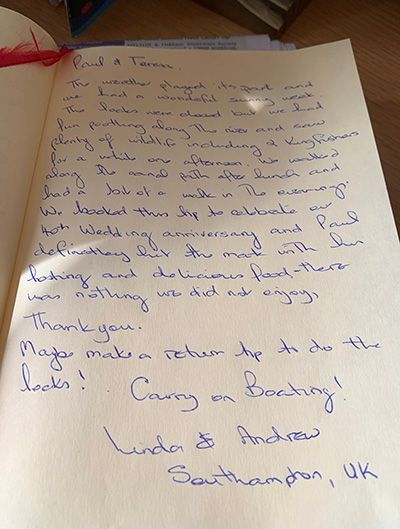 Paul & Teresa.
The weather played its part and
we had a wonderful sunny week.
The locks were closed but we had
fun pootling along the river and saw
plenty of wildlife including 2 Kingfishers
for a while one afternoon. We walked
along the canal path after lunch and
had a bit of a walk in the evening.
We booked this trip to celebrate our
40th Wedding anniversary and Paul
definately hit the mark with his
hosting and delicious food - there
was nothing we did not enjoy.
Thank you.
Maybe make a return trip to do the
locks!
Carry on Boating!
Linda & Andrew
Southampton, UK